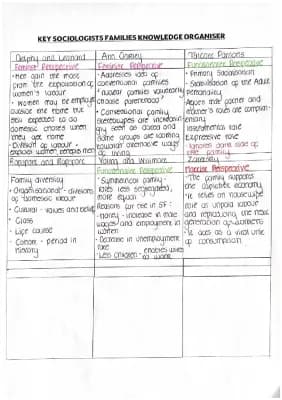 KEY SOCIOLOGISTS FAMILIES KNOWLEDGE ORGANISER
Delphy and Leonard
Feminist Perspective
• Men gain the most
from the exploitation of
women's labour
• Women may be employed
outside the home but
still expected to do
domestic chores when
they get home
• Division of labour -
exploits women, benefits men
Ann Oakley
Feminist Perspective
• Addresses idea of
conventional families
• 'nuclear families voluntarily
choose parenthood'
• Conventional family
stereotypes are increasingly
seen as dated and
some groups are looking
towards alternative ways
of living
Talcott Parsons
Functionalist Perspective
• Primary Socialisation
• Stabilisation of the Adult
Personality
female roles are complementary
Instrumental role
Expressive role
• Ignores dark side of
the family
Rapoport and Rapoport
Family diversity
• Organisational - divisions
of domestic labour
• Cultural - values and beliefs
• Class
• Life course
• Cohort - period in
history
Young and Willmott
Functionalist Perspective
• Symmetrical family -
roles less segregated,
more equal
Reasons for rise in SF:
money - increase in male
wages and employment in
women
• Decrease in unemployment
rate
• Less children - enables wives
to work
Zaretsky
Marxist Perspective
• The family supports
the capitalist economy
• It relies on housewives
role as unpaid labour
and reproducing the next
generation of workers
• It acts as a vital unit
of consumption